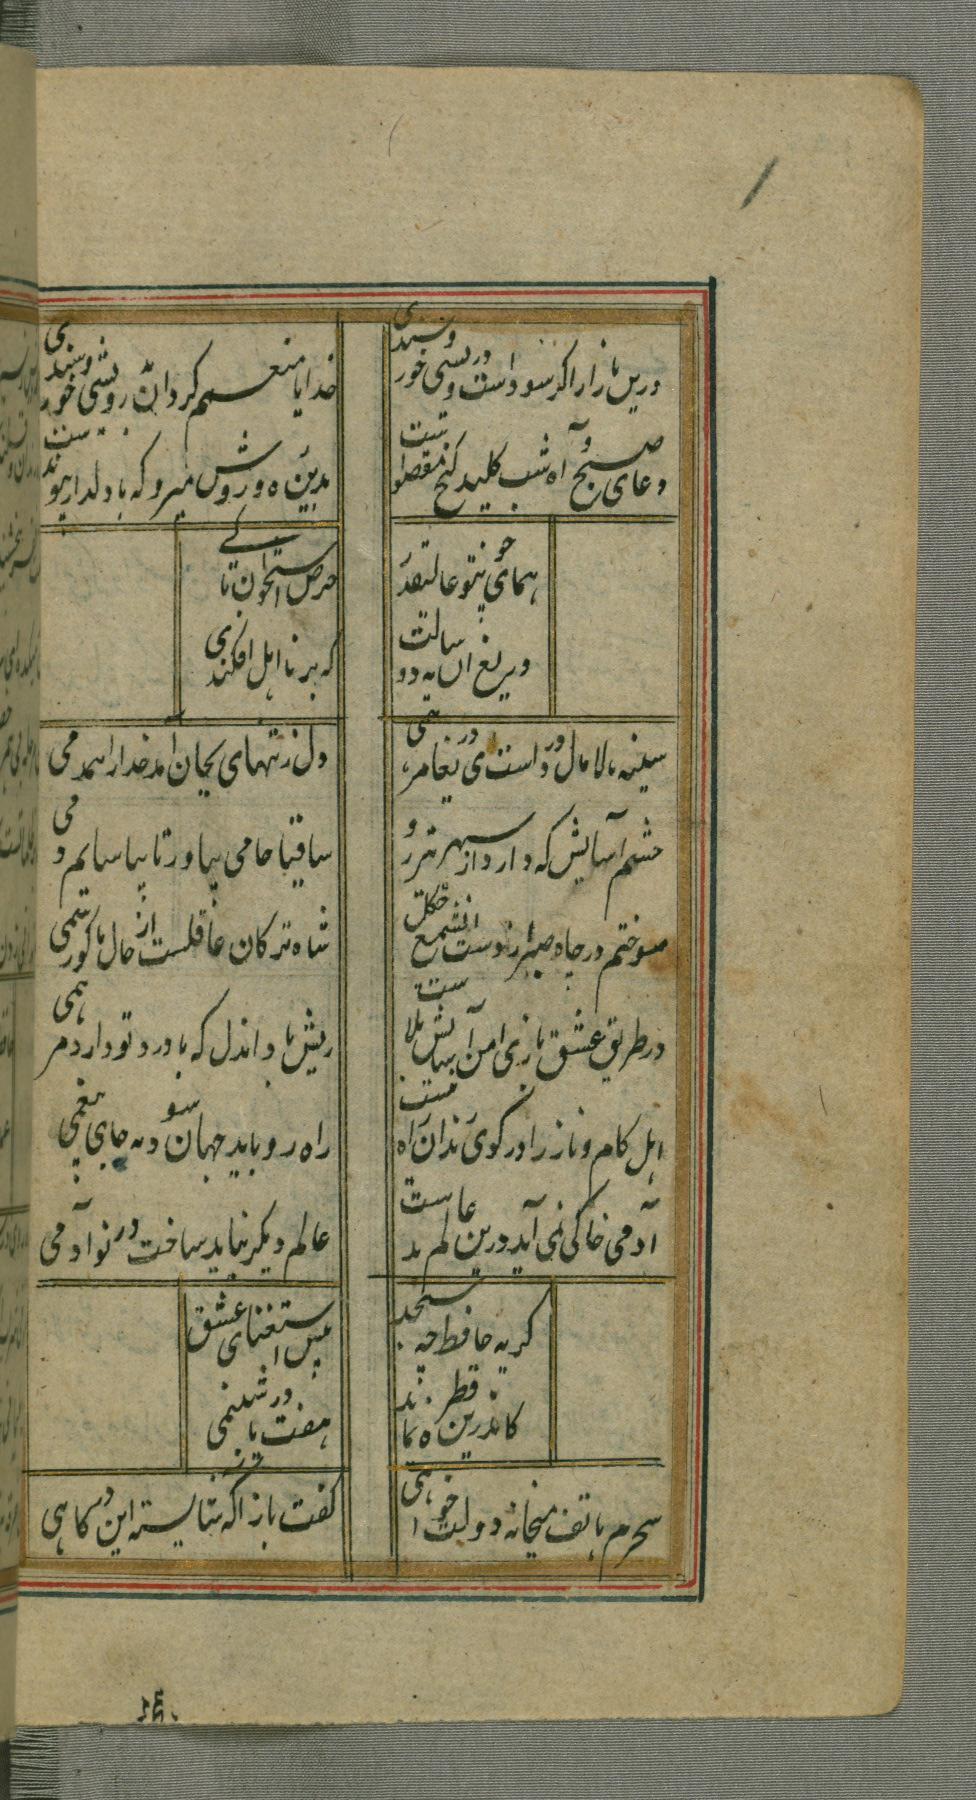 درین بازار اگر سود است با درویش خورسندی
خدایا منعمم گردان بدرویشی و خورسندی
دعای صبح و آه شب کلید گنج مقصود است
بدین راه و روش میرو که با دلدار پیوندی
همای چون تو عالیقدر حرص استخوان تا کی
دریغ آن سایه دولت که بر نااهل افکندی
سینه مالامال درد است ای دریغا مرهمی
دل ز تنهای بجان آمد خدا را همدمی
چشم آسایش که دارد از سپهر تیزرو
ساقیا جامی بیاور تا بیاسایم دمی
سوختم در چاه صبر از دوست آن شمع چگل
شاه ترکان غافلست از حال ما کو رستمی
در طریق عشقبازی امن آسایش بلاست
ریش باد اندل که با درد تو دارد مرهمی
اهل کام و ناز را در کوی رندان راه نیست
راه رو باید جهان سوز نه جای بیغمی
آدمی خاکی نمی آید درین عالم بدست
عالم دیگر بباید ساخت و ز نو آدمی
گریه حافظ چه سنجد پیش استغنای عشق
کاندرین
سحرم هاتف میخانه بدولتخواهی
گفت باز آ که شایسته این درگاهی